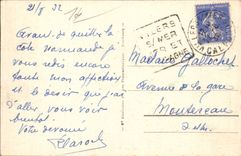 21/8 32
Avant de quitter la
côte normande je
vous redis encore
toute mon affection
et le désir que j'ai
d'aller vous voir
bientôt.
Votre dévoué
VILLERS
S/MER
Madame
Avenue de la gare
Montereau
S. & M.